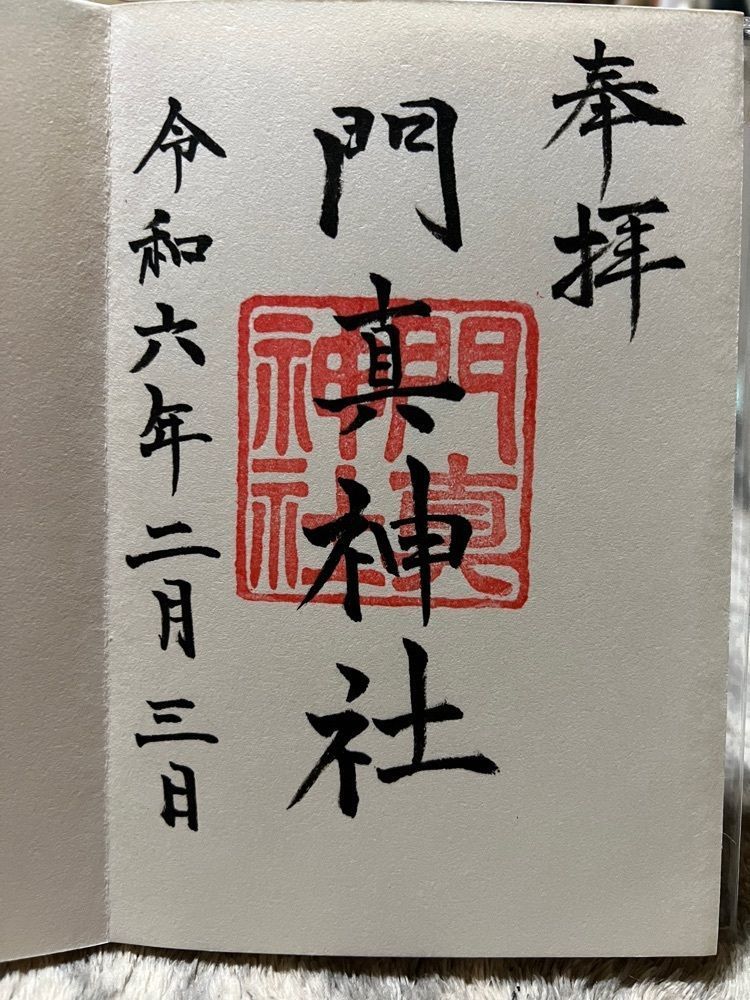 奉拝
門真神社
門真神社
令和六年二月三日